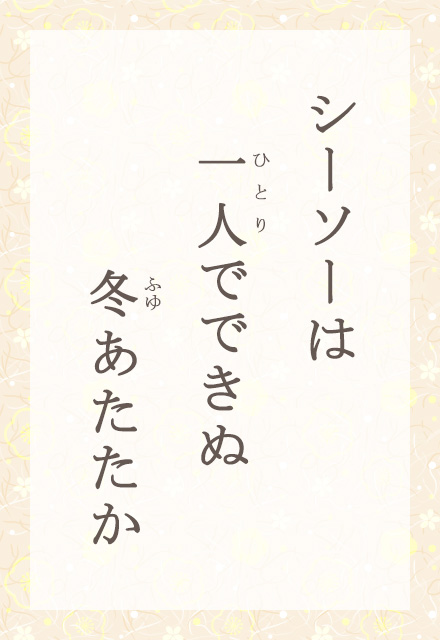 シーソーは
一人でできぬ
ひとり
冬あたたか
ふゆ